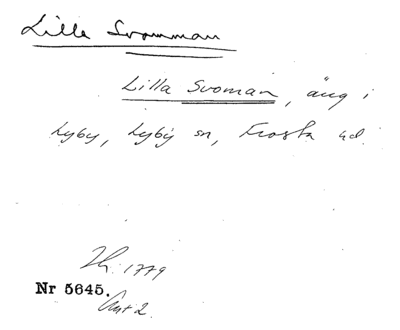 Lilla Svomman
Lilla Svoman, äng i
Lyby, Lyby sn, Frosta hd.
1779
Nr 5645.
Akt 2.